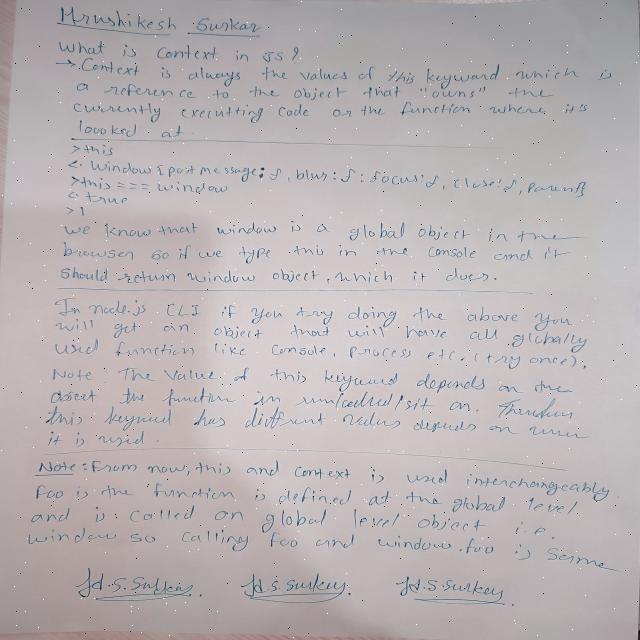 Hrushikesh Surkar
What is Context in JS?
→ Context is always the values of this keyword which is
a reference to the object that "owns" the
currently executting code or the function where it's
loooked at
>this
<. Window {postmessage: f, blur: f: focus: f, close: f, parent}
>this === window
< true
>1
we know that window is a global object in the
browser so if we type this in the console and it
should return window object, which it does.
In node.js CLI if you try doing the above you
will get an object that will have all globally
used function like console, process etc. (try once).
Note The Value of this keyword depends on the
the function is on.
this keyword has values depends on
it is used.
Note: From now, this and context is used interchangeably
Foo is the function is defined at the global level
and is called on global level object i.e.
window so calling foo and window.foo is same